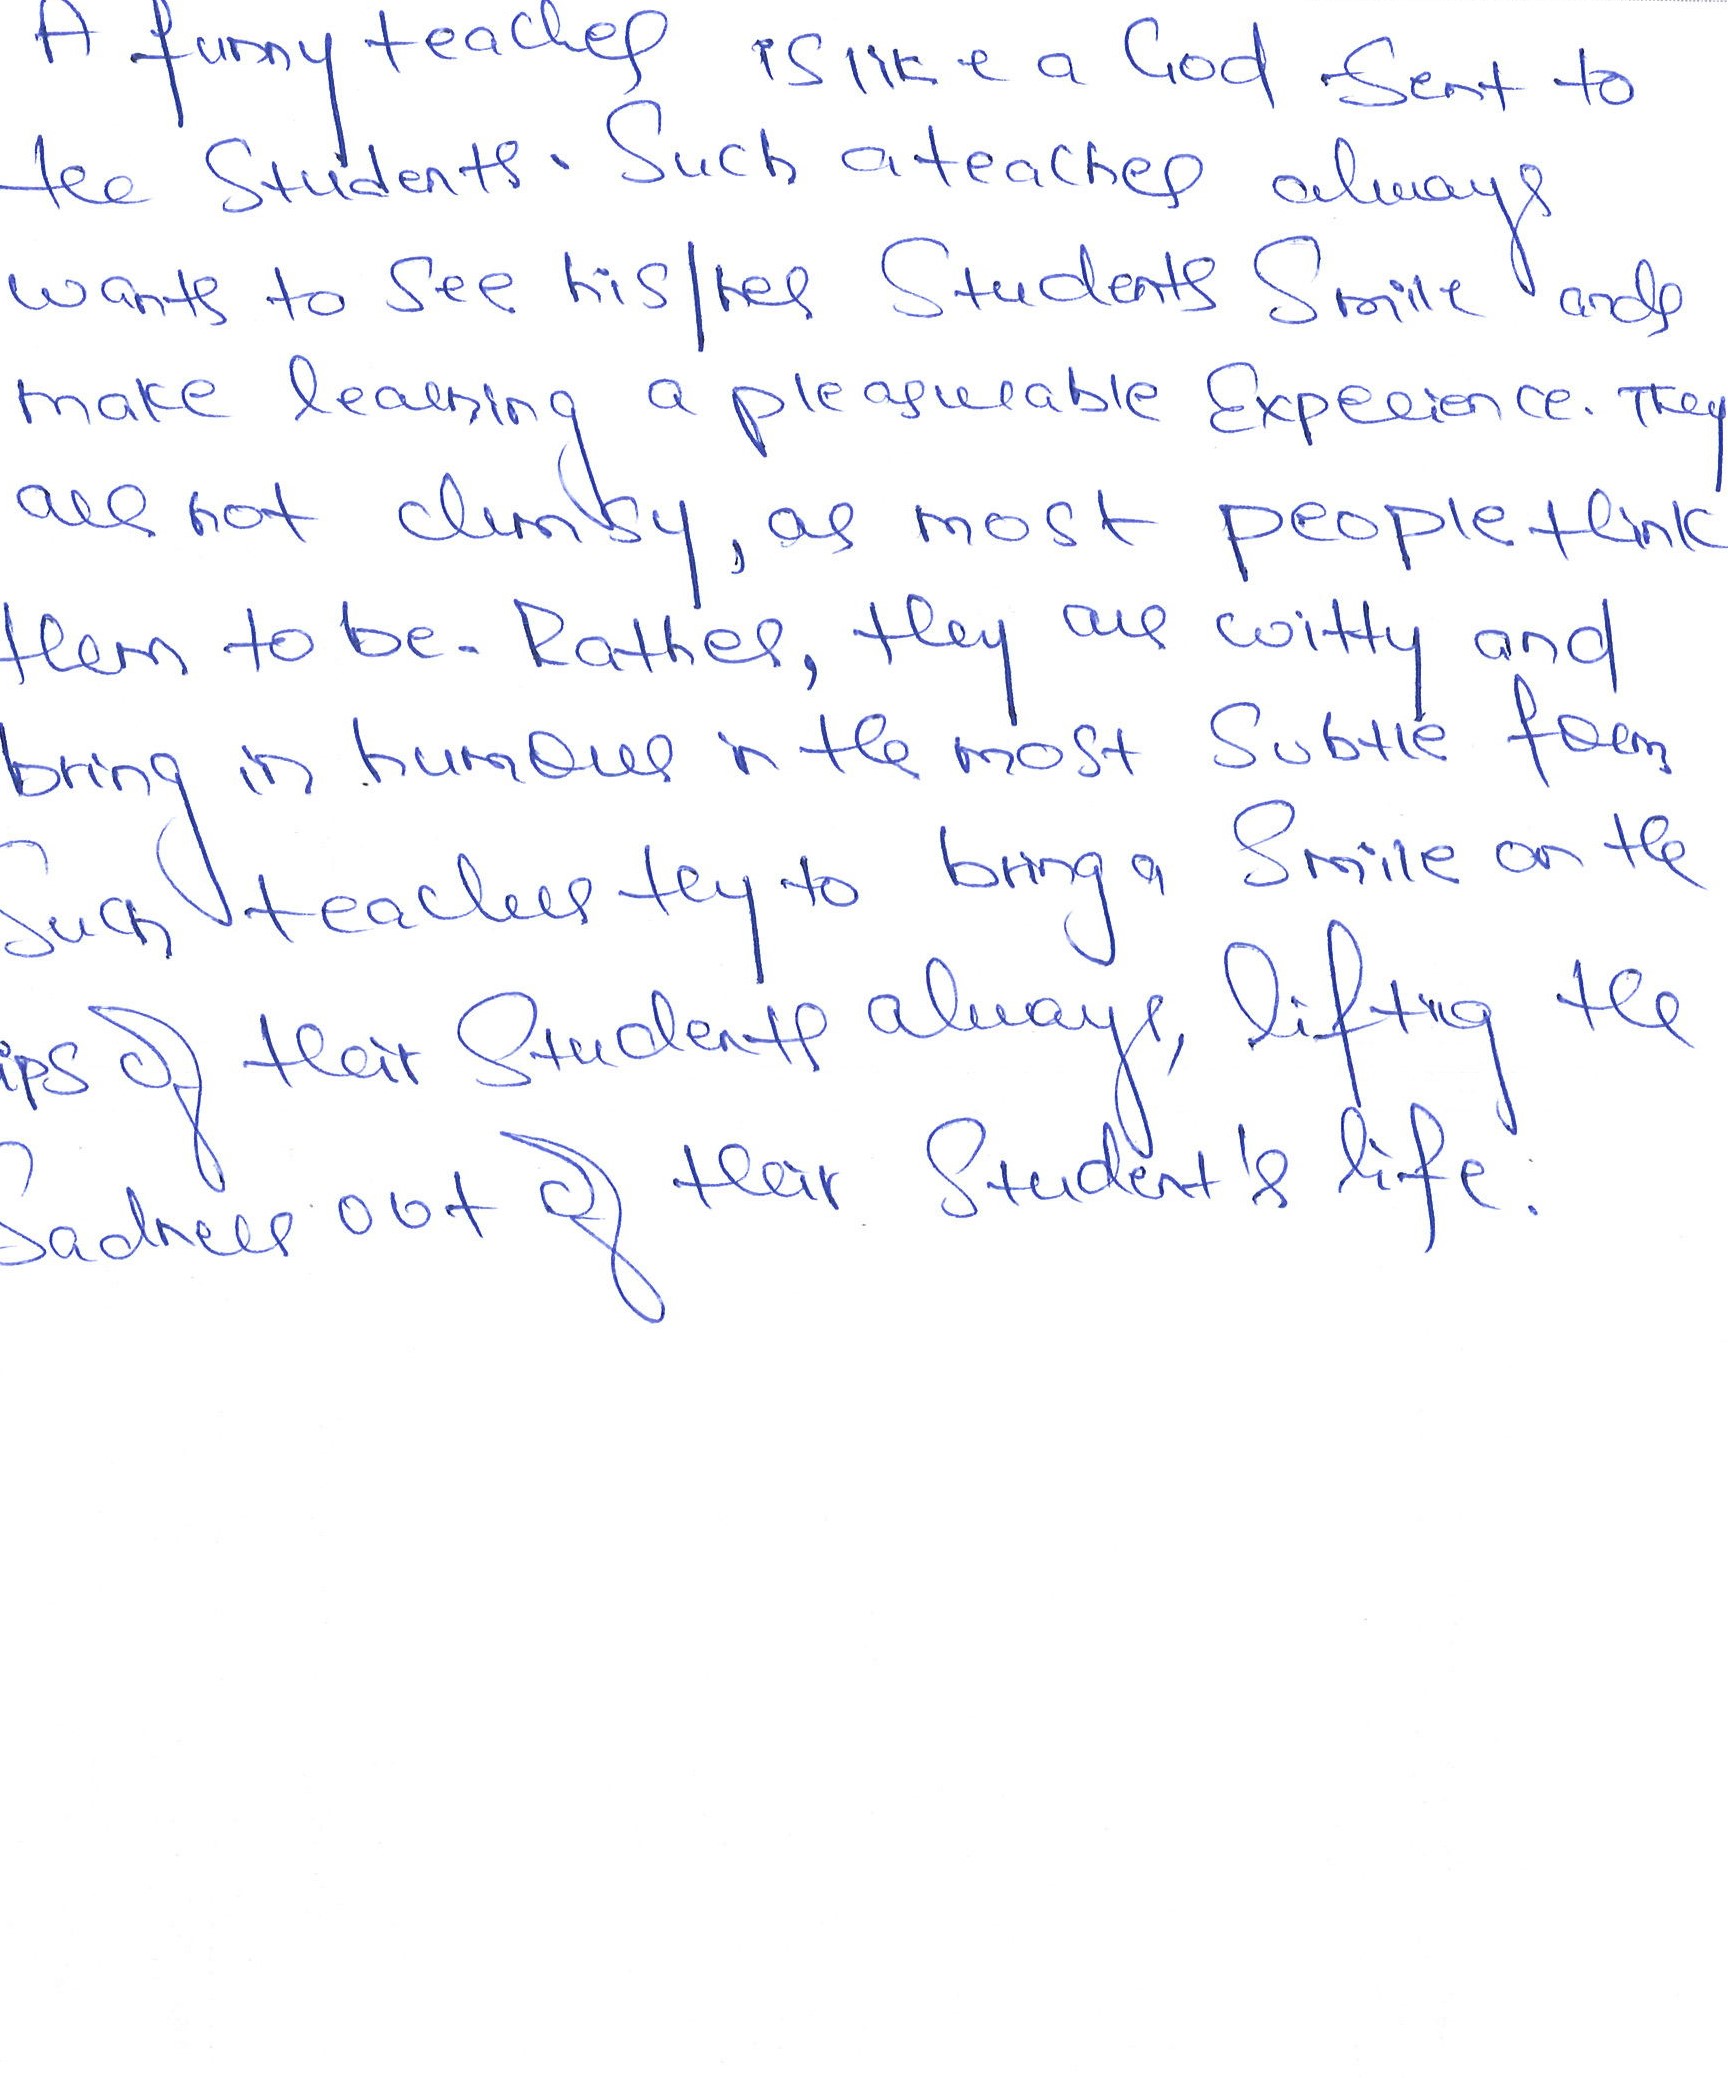 A funny teacher is like a God sent to
the Students. Such a teacher always
wants to See his/her Students Smile and
make learning a pleasureable Experience. They
are not clumsy, as most people think
them to be. Rather, they are witty and
bring in humour in the most Subtle form
Such teachers try to bring a Smile on the
ips of their Students always, lifting the
Sadness out of their Student's life.